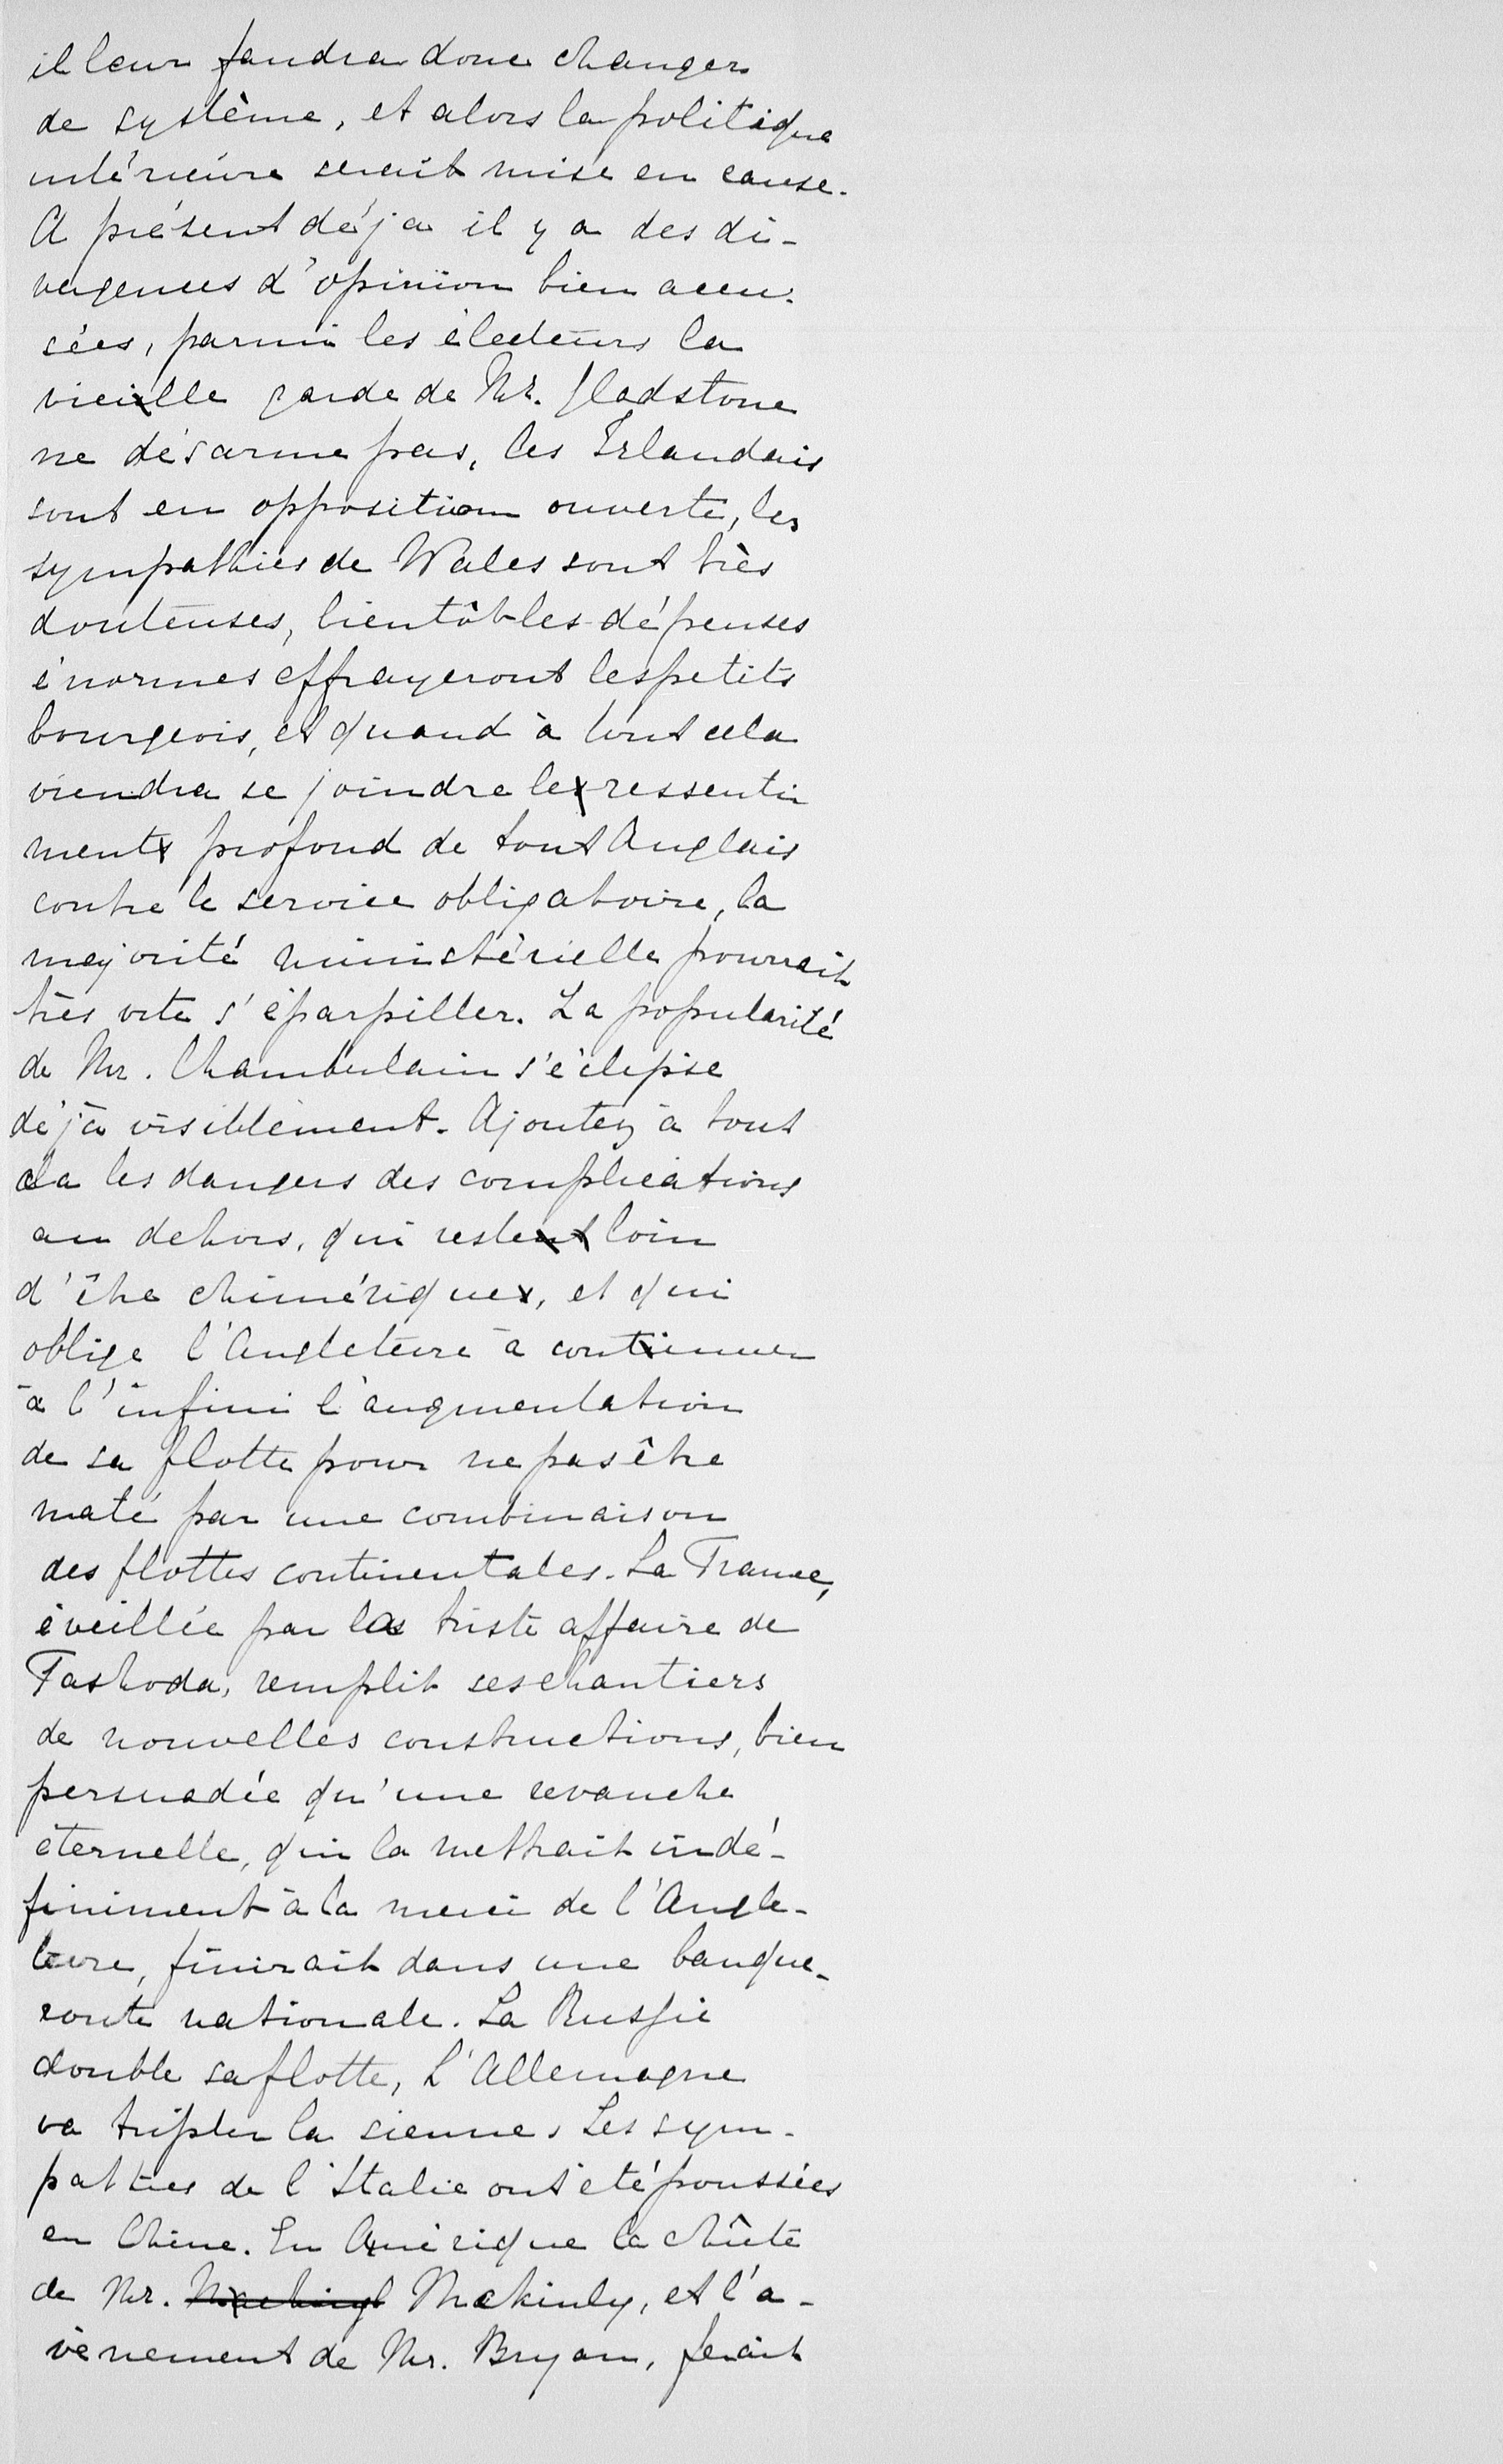 il leur faudra donc changer
de système, et alors la politique
intérieure serait mise en cause.
A présent déja il y a des di-
vergences d'opinion bien accu-
sées, parmi les électeurs la
vieille garde de Mr. Gladstone
ne désarme pas, les Irlandais
sont en opposition ouverte, les
sympathies de Wales sont très
douteuses, bientôt les dépenses
énormes effrayeront les petits
bourgeois, et quand à tout cela
viendra se joindre le ressenti
ment profond de tout Anglais
contre le service obligatoire, la
majorité ministérielle pourrait
très vite s'éparpiller. La popularité
de Mr. Chamberlain s'éclipse
déjà visiblement. Ajoutez à tout
cela les dangers des complications
au dehors, qui reste loin
d'être chimérique, et qui
oblige l'Angleterre à continuer
à l'infini l'augmentation
de sa flotte pour ne pas être
maté par une combinaison
des flottes continentales. La France,
éveillée par la triste affaire de
Fashoda, remplit ses chantiers
de nouvelles constructions, bien
persuadée qu'une revanche
éternelle, qui la mettrait indé-
finiment à la merci de l'Angle-
terre, finirait dans une banque-
route nationale. La Russie
double sa flotte, L'Allemagne
va tripler la sienne. Les sym-
pathies de l'Italie ont été poussées
en Chine. En Amérique la chûte
de Mr. Mckinly, et l'a-
vènement de Mr. Bryan, ferait